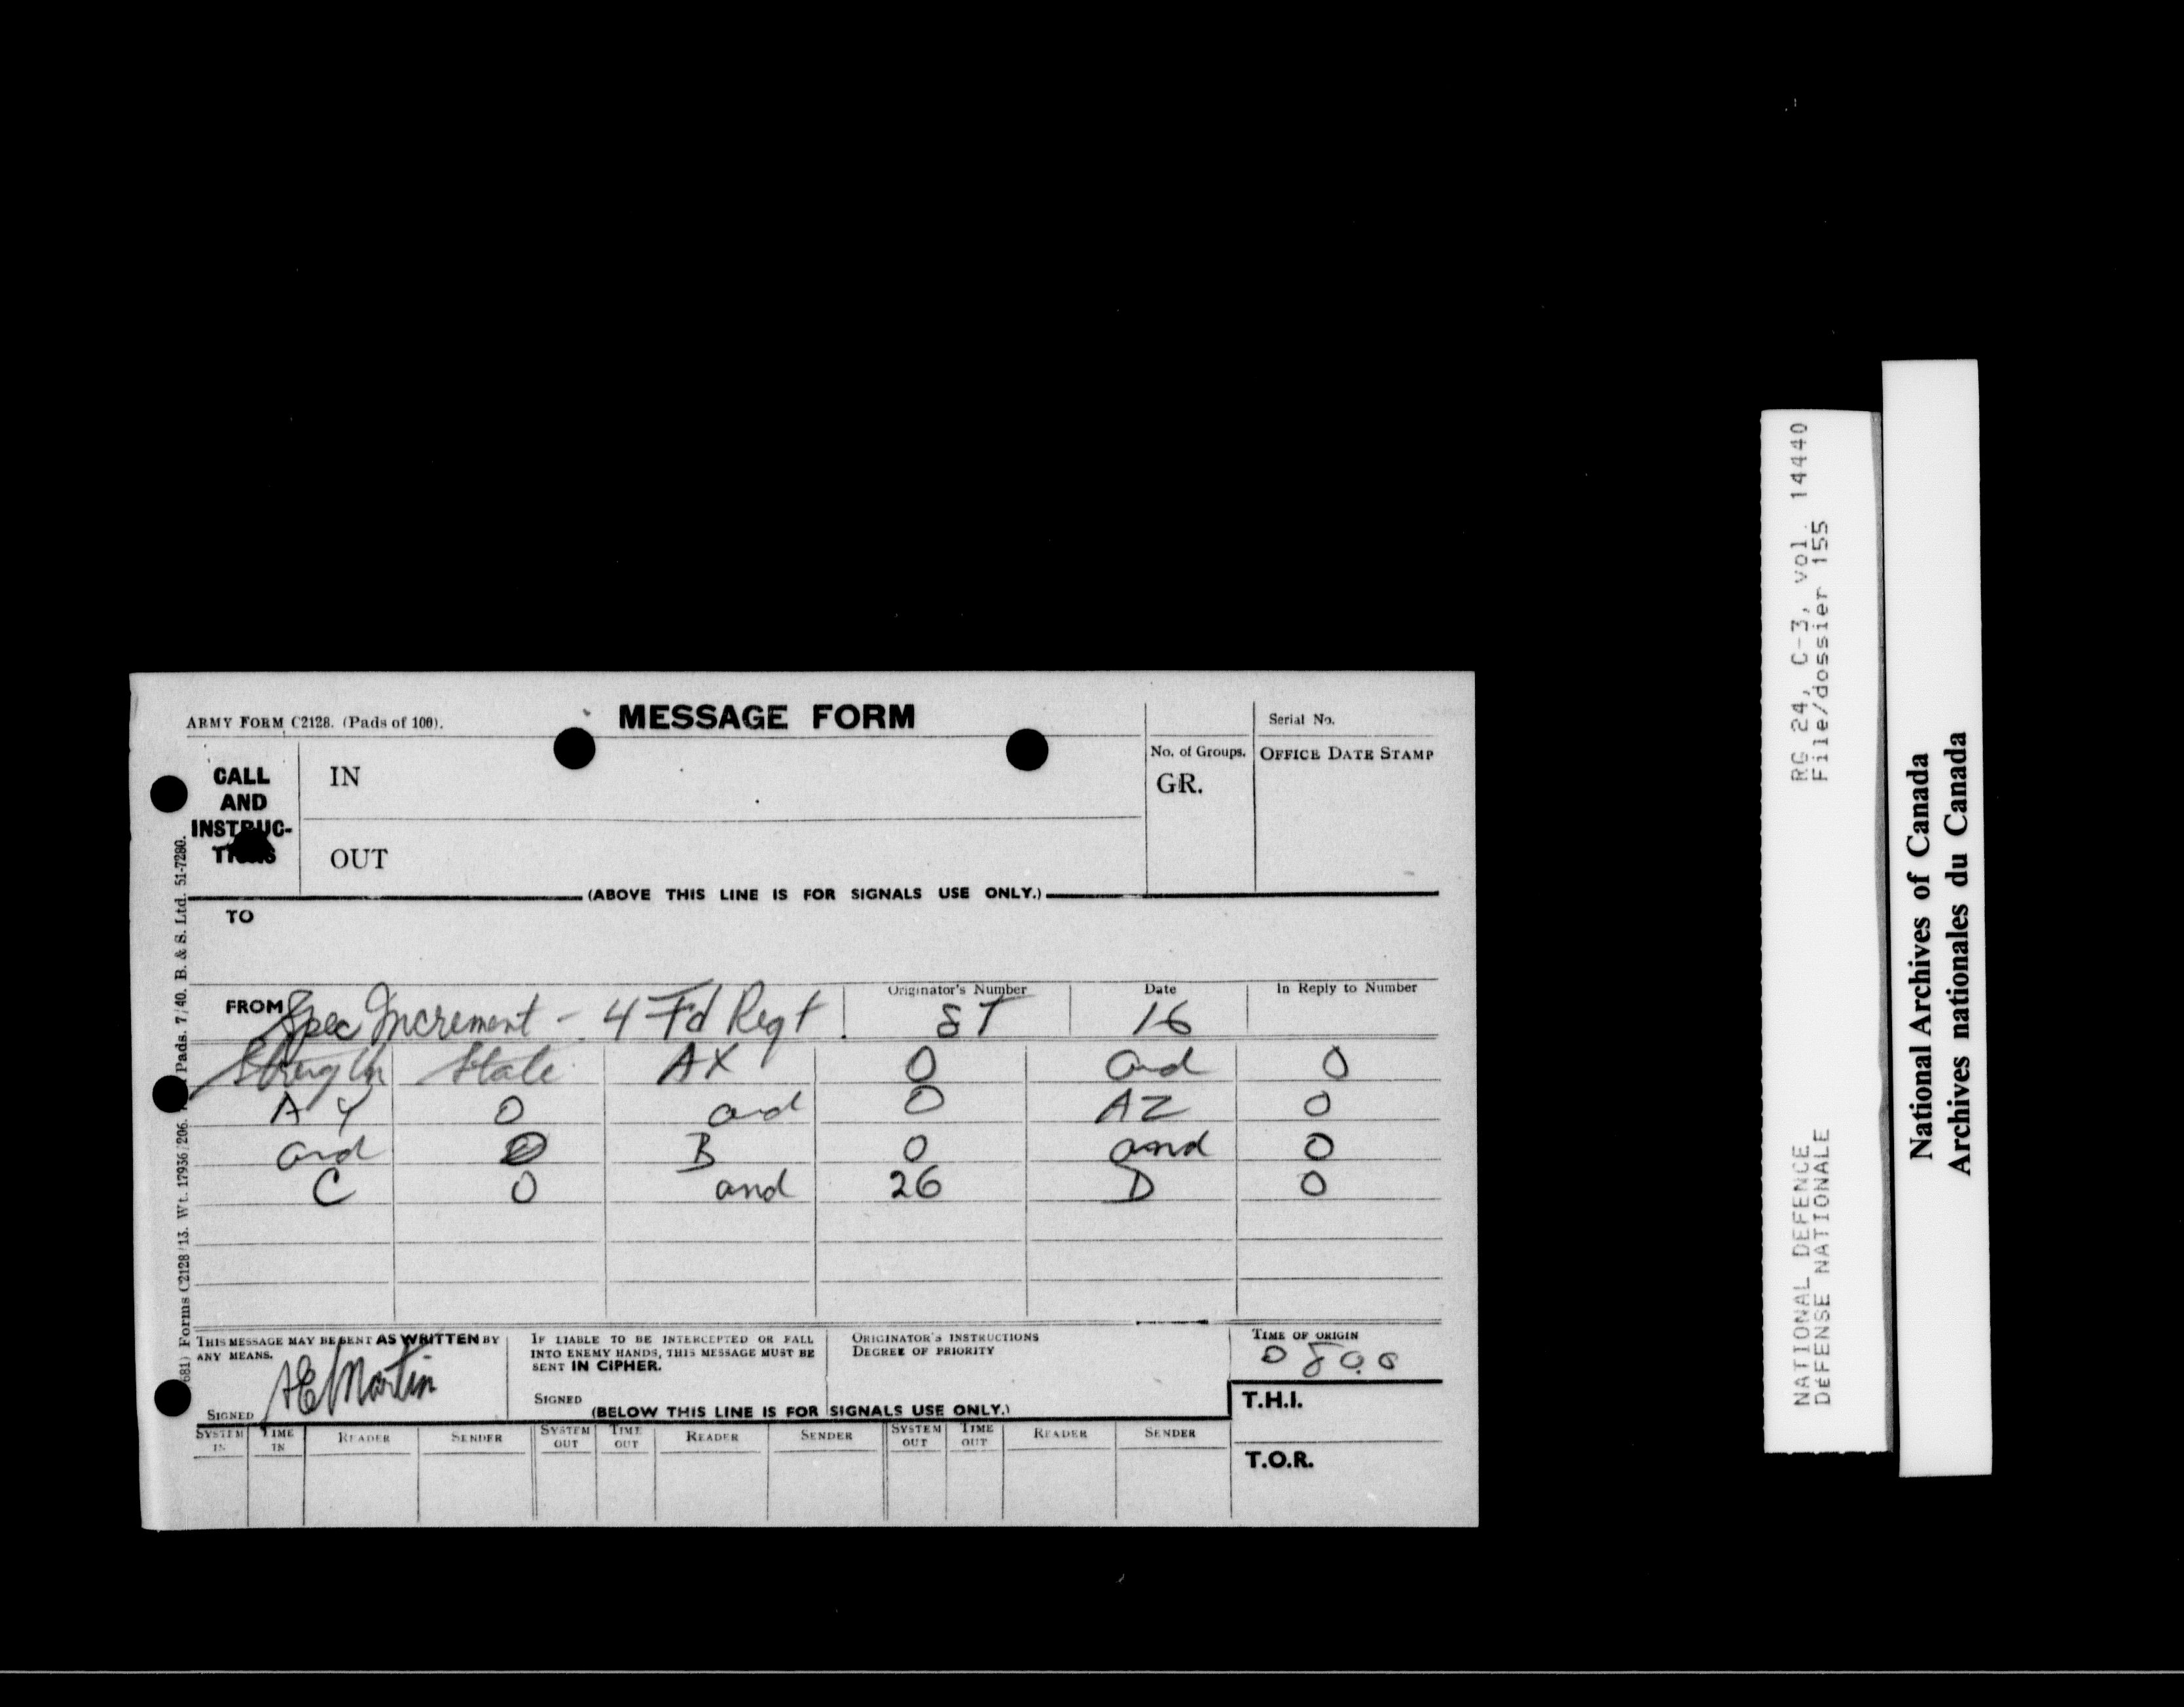 ARMY FORM C2128. (Pads of 100).
MESSAGE FORM
Serial No.
No. of Groups.
OFFICE DATE STAMP
CALL
AND
INSTRUC-
TIONS
IN
GR.
OUT
(ABOVE THIS LINE IS FOR SIGNALS USE ONLY.)
TO
FROM Spec Increment - 4 Fd Regt
Originator's Number
ST
Date
16
In Reply to Number
Strength State AX 0 and 0
AY 0 and 0 AZ 0
and 0 B 0 and 0
C 0 and 26 D 0
THIS MESSAGE MAY BE SENT AS WRITTEN BY
ANY MEANS.
AE Martin
SIGNED
IF LIABLE TO BE INTERCEPTED OR FALL
INTO ENEMY HANDS, THIS MESSAGE MUST BE
SENT IN CIPHER.
SIGNED
ORIGINATOR'S INSTRUCTIONS
DEGREE OF PRIORITY
TIME OF ORIGIN
0800
(BELOW THIS LINE IS FOR SIGNALS USE ONLY.)
T.H.I.
SYSTEM IN TIME IN READER SENDER SYSTEM OUT TIME OUT READER SENDER SYSTEM OUT TIME OUT READER SENDER
T.O.R.
681) Forms C2128/13. Wt. 17936/206. Pads. 7/40. B. & S. Ltd. 51-7280.
NATIONAL DEFENCE RG 24, C-3, vol. 14440
DEFENSE NATIONALE File/dossier 155
National Archives of Canada
Archives nationales du Canada